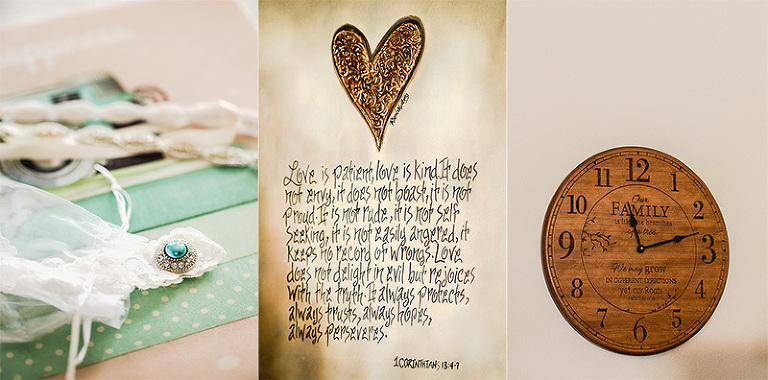 Love is patient, love is kind. It does
not envy, it does not boast, it is not
proud. It is not rude, it is not self
seeking, it is not easily angered, it
keeps no record of wrongs. Love
does not delight in evil but rejoices
with the truth. It always protects,
always trusts, always hopes,
always perseveres.
1 CORINTHIANS 13:4-7
12
11
1
10
2
9
3
8
4
7
5
6
Our
FAMILY
is like the branches
tree.
We may grow
IN DIFFERENT DIRECTIONS
yet our Roots